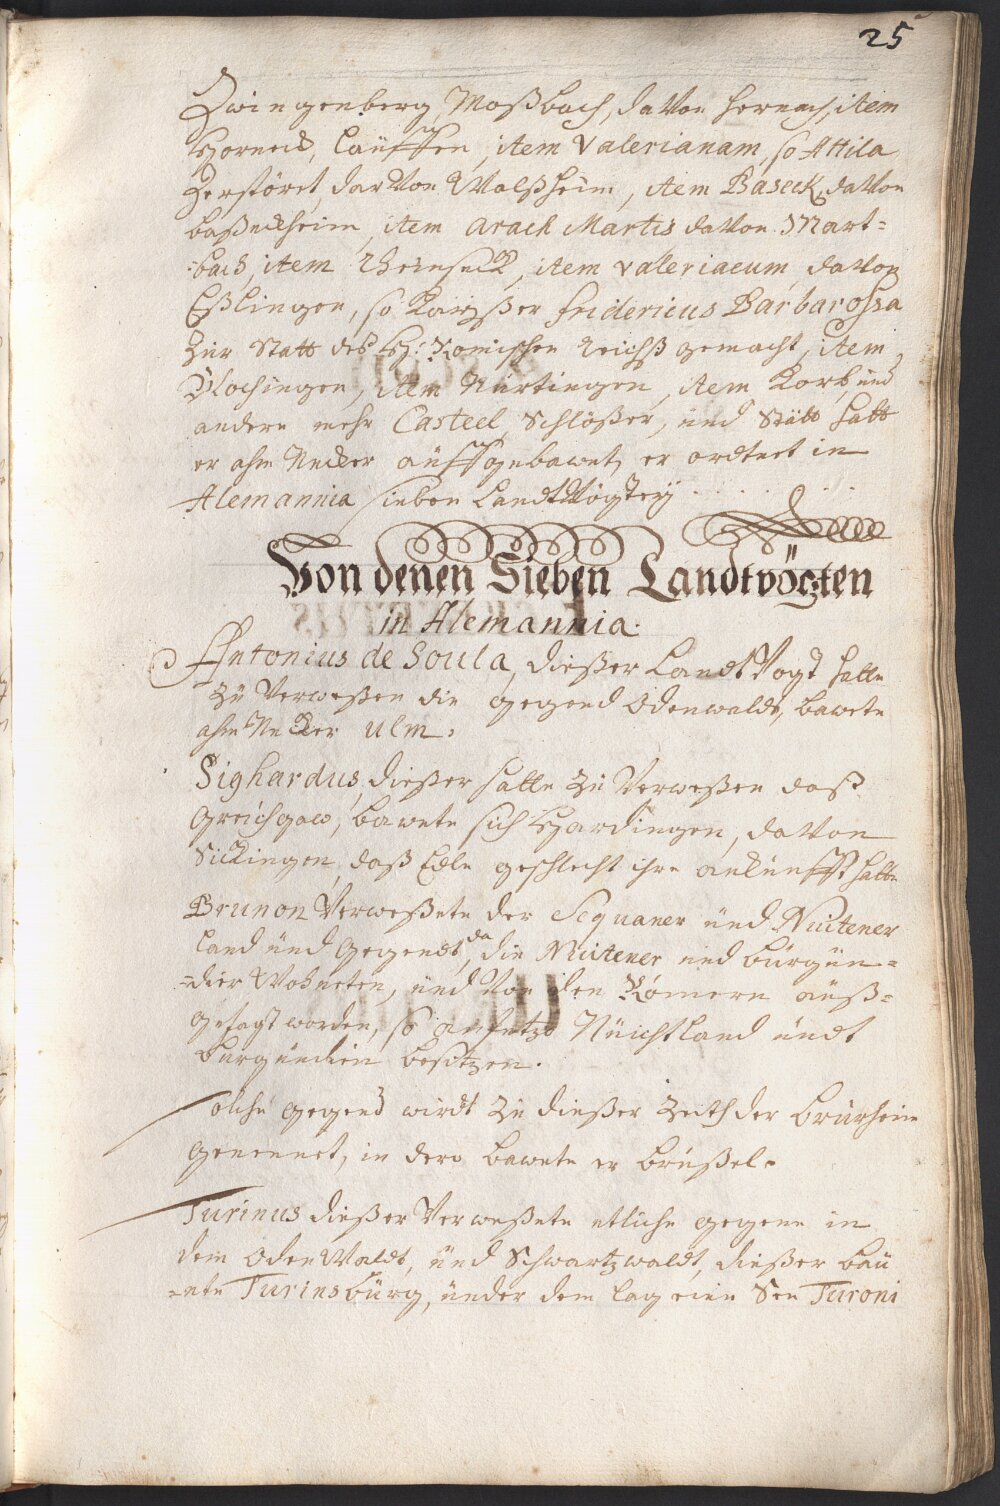 25
Zwingenberg, Moßbach, da von hernach, item
Horneck, Lauffen, item Valerianam, so Attila
Zerstöret, darvon Walßheim, item Baseck, davon
baßenheim, item Arach Martis davon Mart-
-bach, item Rheinseck, item valeriacum, davon
Eßlingen, so Kayßer Fridericus Barbarossa
zur Statt deß H: Römischen Reichß gemacht, item
Plochingen, item Nürtingen, item Korb, und
andere mehr Casteel, Schlößer, und Stätt hatt
er ahm Necker auffgebawet, er ordnet in
Alemannia sieben Landtvögtey
Von denen Sieben Landtvögten
in Alemannia.
Antonius de Soula, dießer Landt Vogt hatte
zu Verweßen die gegend Odenwaldt, bawete
ahm Necker ulm.
Sighardus, dießer hatte zu Verweßen daß
Greichgaw, bawete sich Hardingen, davon
Sickingen, daß Edle geschlecht ihre ankunfft hatt
Brunon Verweßete der Sequaner und Nuitener
Land und Gegendt, da die Nuitener und Burgun-
-dier Wohneten, und von den Römern auß-
gesagt worden, so anjetzo Nüichtland undt
Burgundien besitzen.
Solche gegend wirdt zu dießer Zeith der Brurhein
genennet, in dero bawete er Brüßel.
Turinus dießer Verweßete etliche gegene in
dem OdenWaldt, und Schwartzwaldt, dießer bau
-ete Turinsburg, under dem lag eine See Turoni